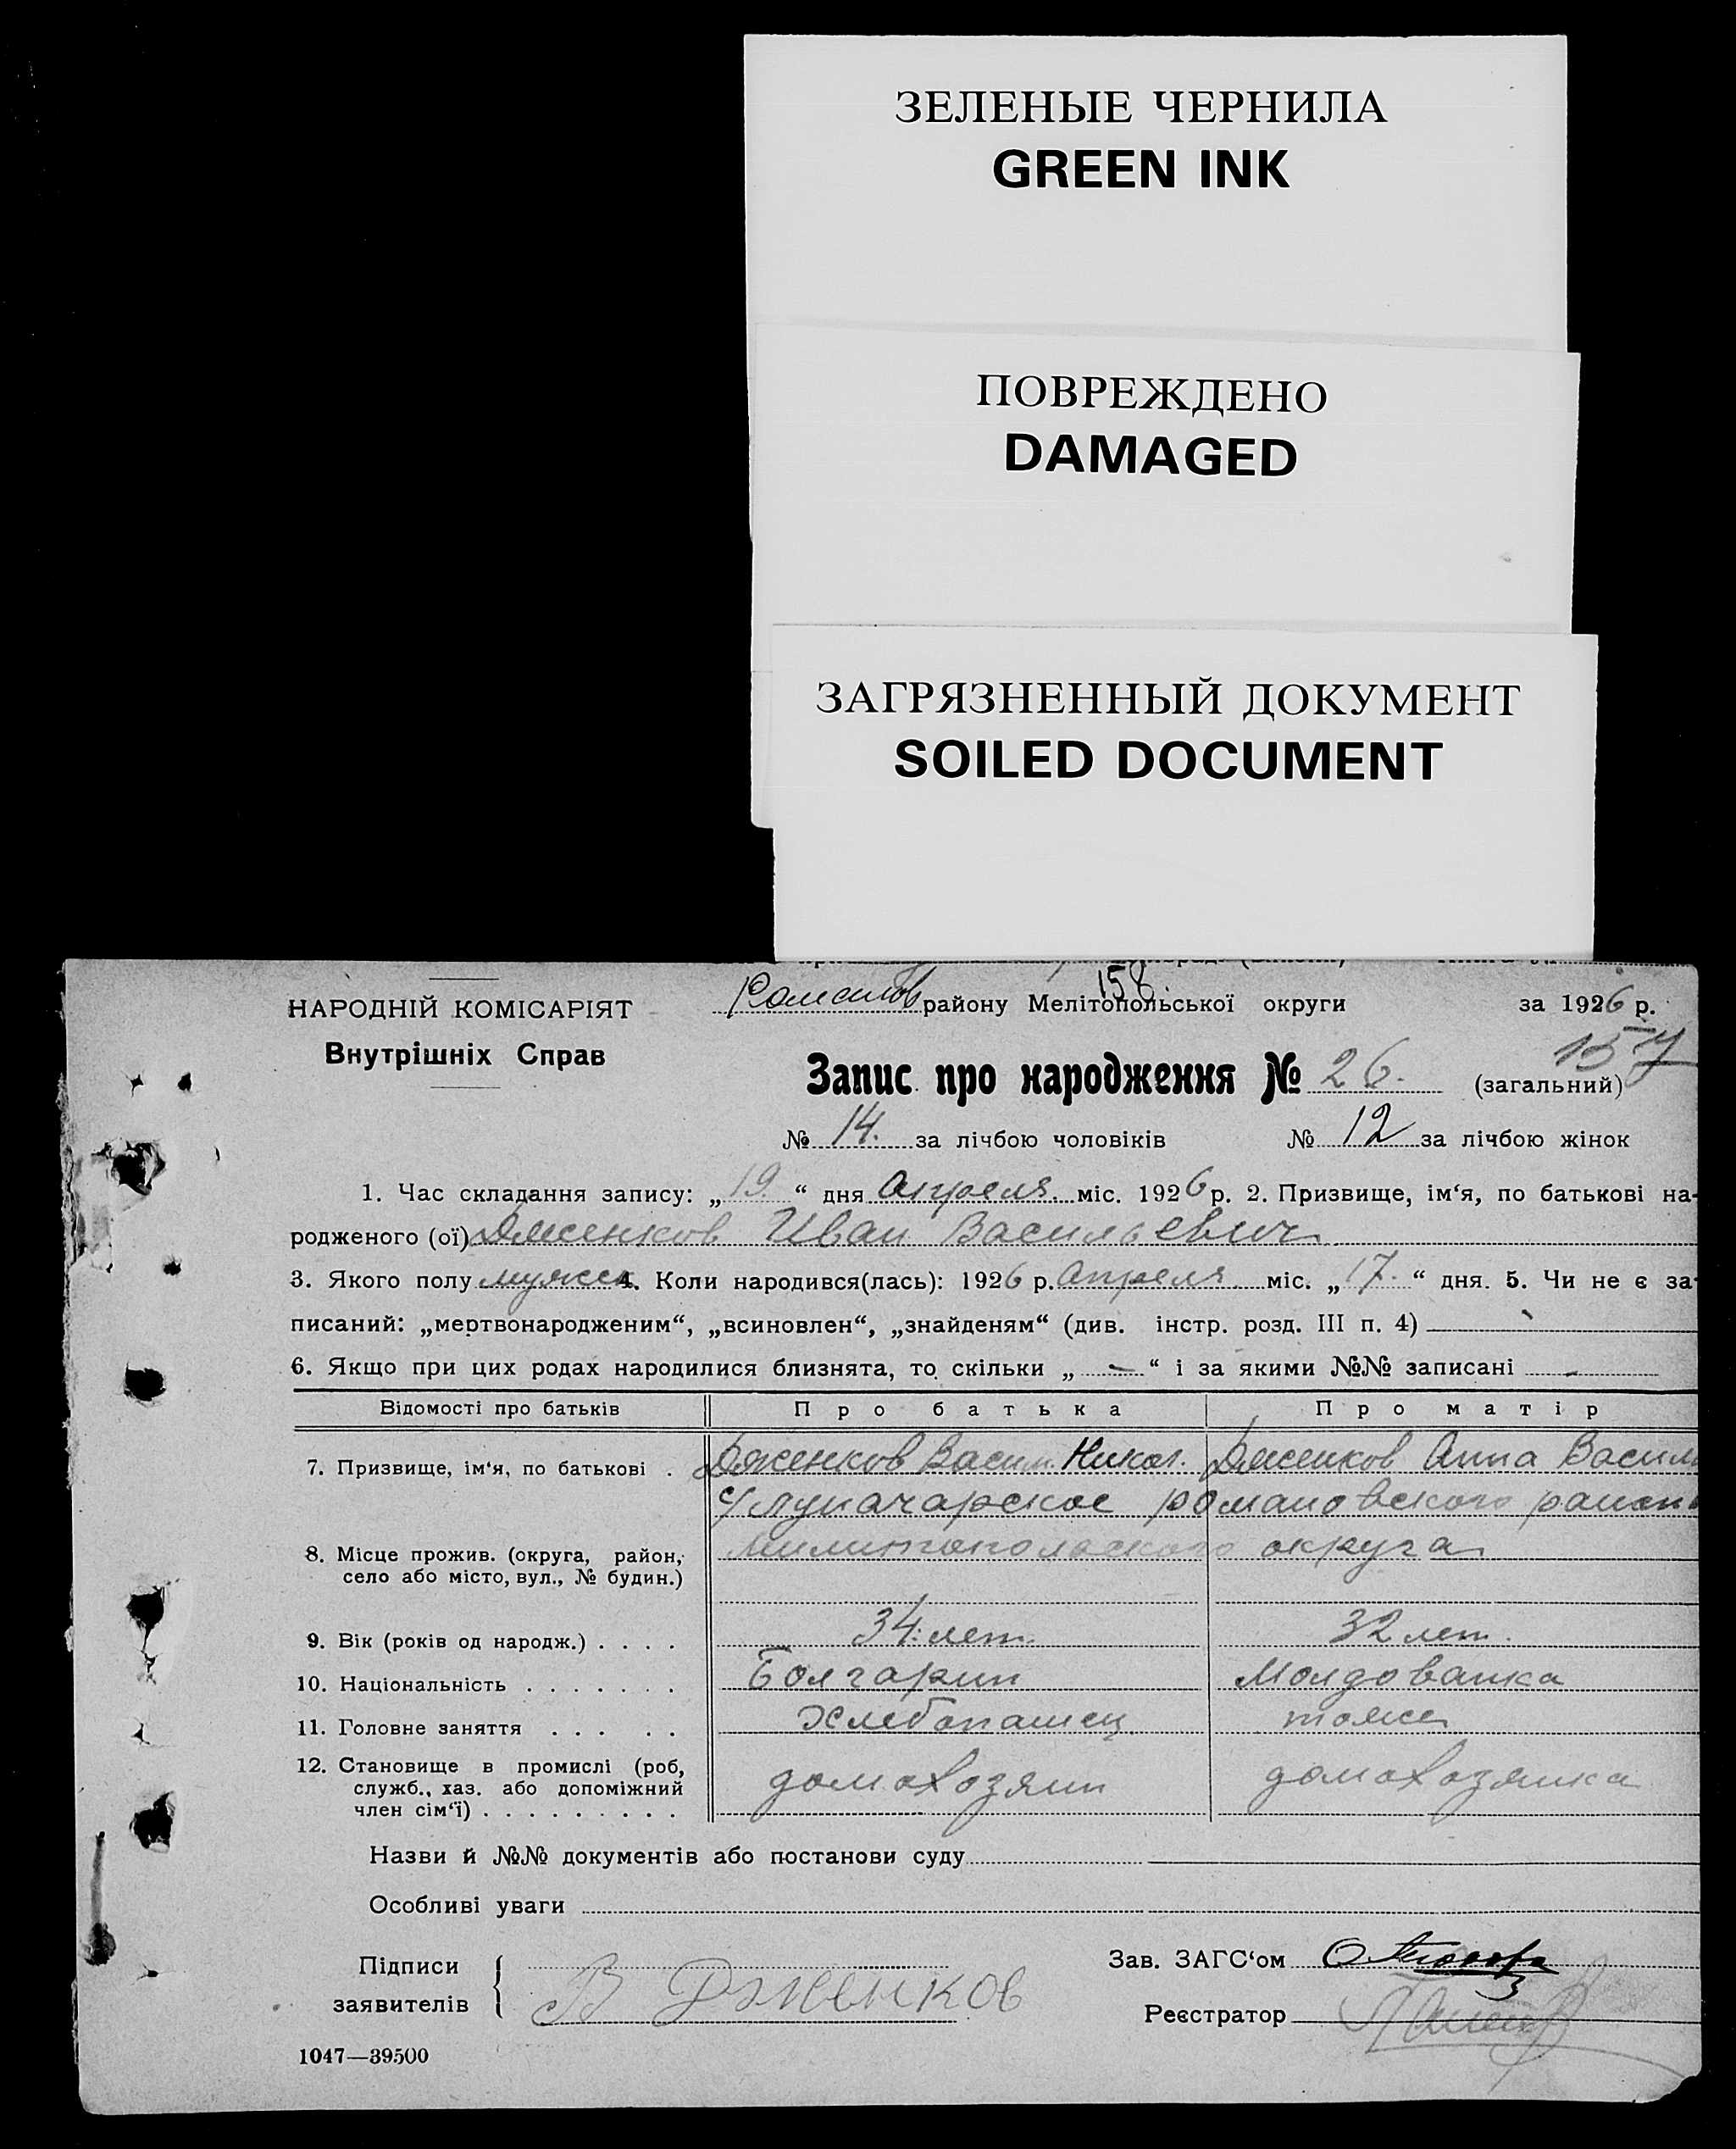 ЗЕЛЕНЫЕ ЧЕРНИЛА
GREEN INK
ПОВРЕЖДЕНО
DAMAGED
ЗАГРЯЗНЕННЫЙ ДОКУМЕНТ
SOILED DOCUMENT
158.
НАРОДНІЙ КОМІСАРІЯТ
Романов району Мелітопольської округи за 1926 р.
Внутрішніх Справ
157
Запис про народження № 26. (загальний)
№ 14. за лічбою чоловіків № 12 за лічбою жінок
1. Час складання запису: „19.“ дня Апреля міс. 1926 р. 2. Призвище, ім‘я, по батькові на-
родженого (ої) Дженков Иван Васильевич
3. Якого полу мужск 4. Коли народився(лась): 1926 р. Апреля міс. „17.“ дня. 5. Чи не є за-
писаний: „мертвонародженим“, „всиновлен“, „знайденям“ (див. інстр. розд. III п. 4)
6. Якщо при цих родах народилися близнята, то скільки „ — “ і за якими №№ записані -
Відомості про батьків Про батька Про матір
7. Призвище, ім‘я, по батькові . Дженков Васил. Никол. Дженков Анна Васил
с/Луначарское романовского района
8. Місце прожив. (округа, район, село або місто, вул., № будин.) Милитопольского округа
9. Вік (років од народж.) . . . . 34 лет. 32 лет.
10. Національність . . . . . . . Болгарин Молдованка
11. Головне заняття . . . . . Хлебопашец тоже
12. Становище в промислі (роб, служб., хаз. або допоміжний член сім‘ї) . . . . . . . . . домохозяин домохозяйка
Назви й №№ документів або постанови суду
Особливі уваги
Підписи заявителів В Дженков
Зав. ЗАГС‘ом
Реєстратор
1047—39500